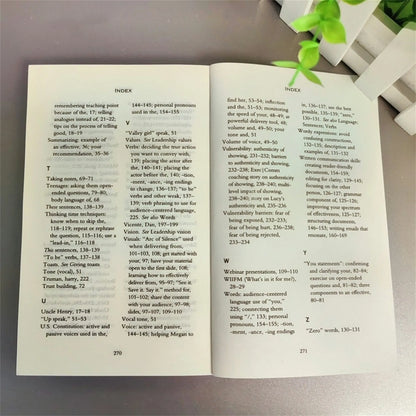 INDEX
remembering teaching point
because of the, 17; telling
analogies instead of, 21–22;
tips on the process of telling
good, 18–19
Summarizing: example of
an effective, 36; your
recommendation, 35–36
T
Taking notes, 69–71
Teenages: asking them open-
ended questions, 79–80,
body language of, 68
These sentences, 138–139
Thinking time techniques:
know when to skip the,
118–119; repeat or rephrase
the question, 115–116; use a
"lead-in," 116–118
This sentences, 138–139
"To be" verbs, 137–138
Toasts. See Giving toasts
Tone (vocal), 51
Truman, harry, 222
Trust building, 72
U
Uncle Henry, 17–18
"Up speak," 51–53
U.S. Constitution: active and
passive voices used in the,
144–145; personal pronouns
used in the, 154–155
V
"Valley girl" speak, 51
Values. See Leadership values
Verbs: deciding the true action
you want to convey with,
139; placing the actor after
the, 140; placing the
actor before the, 140; -tion,
-ment, -ance, -ing endings
to change, 136–137; "to be"
verbs and other weak, 137–
139; verb phrasing to use
audience-centered language,
225. See also Words
Vincent, Dan, 197–199
Vision. See Leadership vision
Visuals: "Arc of Silence" used
when delivering from,
101–103, 108; get started with
your, 97; have your material
open to the first slide, 108;
learning how to effectively
deliver from, 95–97; "See it.
Save it. Say it." method for,
101–102; share the content
with your audience, 97–98;
slides, 97–107, 109–110
Vocal tone, 51
Voice: active and passive,
144–145; helping Megan to
270
INDEX
find her, 53–54; inflection
and the, 51–53; monitoring
the speed of your, 48–49, as
powerful delivery tool, 48;
volume and, 49–50; your
tone and, 51
Volume of voice, 49–50
Vulnerability: authenticity of
showing, 231–232; barriers
to authenticity and showing,
232–238;
coaching story on authenticity
of showing, 238–240; multi-
level impact of showing,
238–240; story on Lucy's
authenticity and, 235–236
Vulnerability barriers: fear of
being exposed, 232–233;
fear of being hurt, 236–238;
fear of being rejected,
233–234
W
Webinar presentations, 109–110
WIIFM (What's in it for me?),
28–29
Words: audience-centered
language use of "you,"
225; connecting them
using "/," 133; personal
pronouns, 154–155; -tion,
-ment, -ance, -ing endings
in, 136–137; use the best
possible, 135–139, "zero,"
130–131. See also Language;
Sentences; Verbs
Wordy expressions: avoid
confusing constructions,
132–135; description and
examples of, 131–132
Written communication skills:
creating reader-friendly
documents, 154–159;
editing for clarity, 129–145;
focusing on the other
person, 126–127; grammar
component of, 125–126;
improving your spectrum
of effectiveness, 125–127;
structuring documents,
146–153; writing emails that
resonate, 160–169
Y
"You statements": confirming
and clarifying your, 82–84;
exercise on open-ended
questions and, 81–82; three
components to an effective,
80–81
Z
"Zero" words, 130–131
271